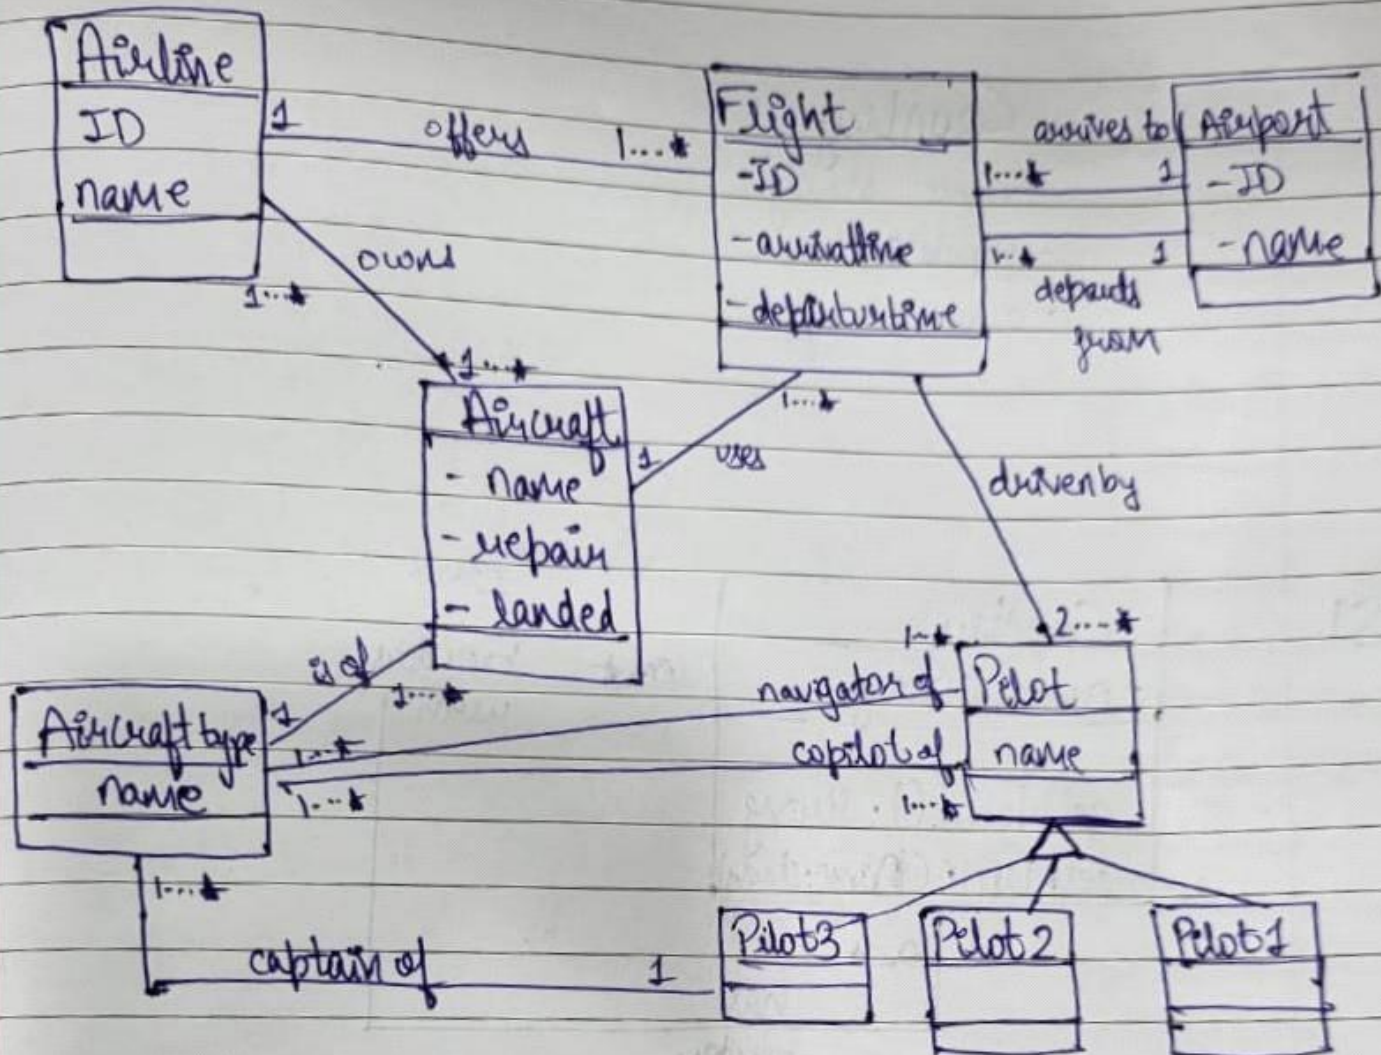 Airline
ID
name
1
offers
1...*
Flight
-ID
-arrivaltime
-departurtime
arrives to
1...*
1
1..*
1
departs
from
Airport
-ID
-name
owns
1...*
1...*
Aircraft
- name
- repair
- landed
1
uses
1...*
drivenby
2...*
is of
1
1...*
Aircrafttype
name
navigator of
1...*
1..*
copilot of
1...*
1...*
Pilot
name
1...*
captain of
1
Pilot3
Pilot2
Pilot1